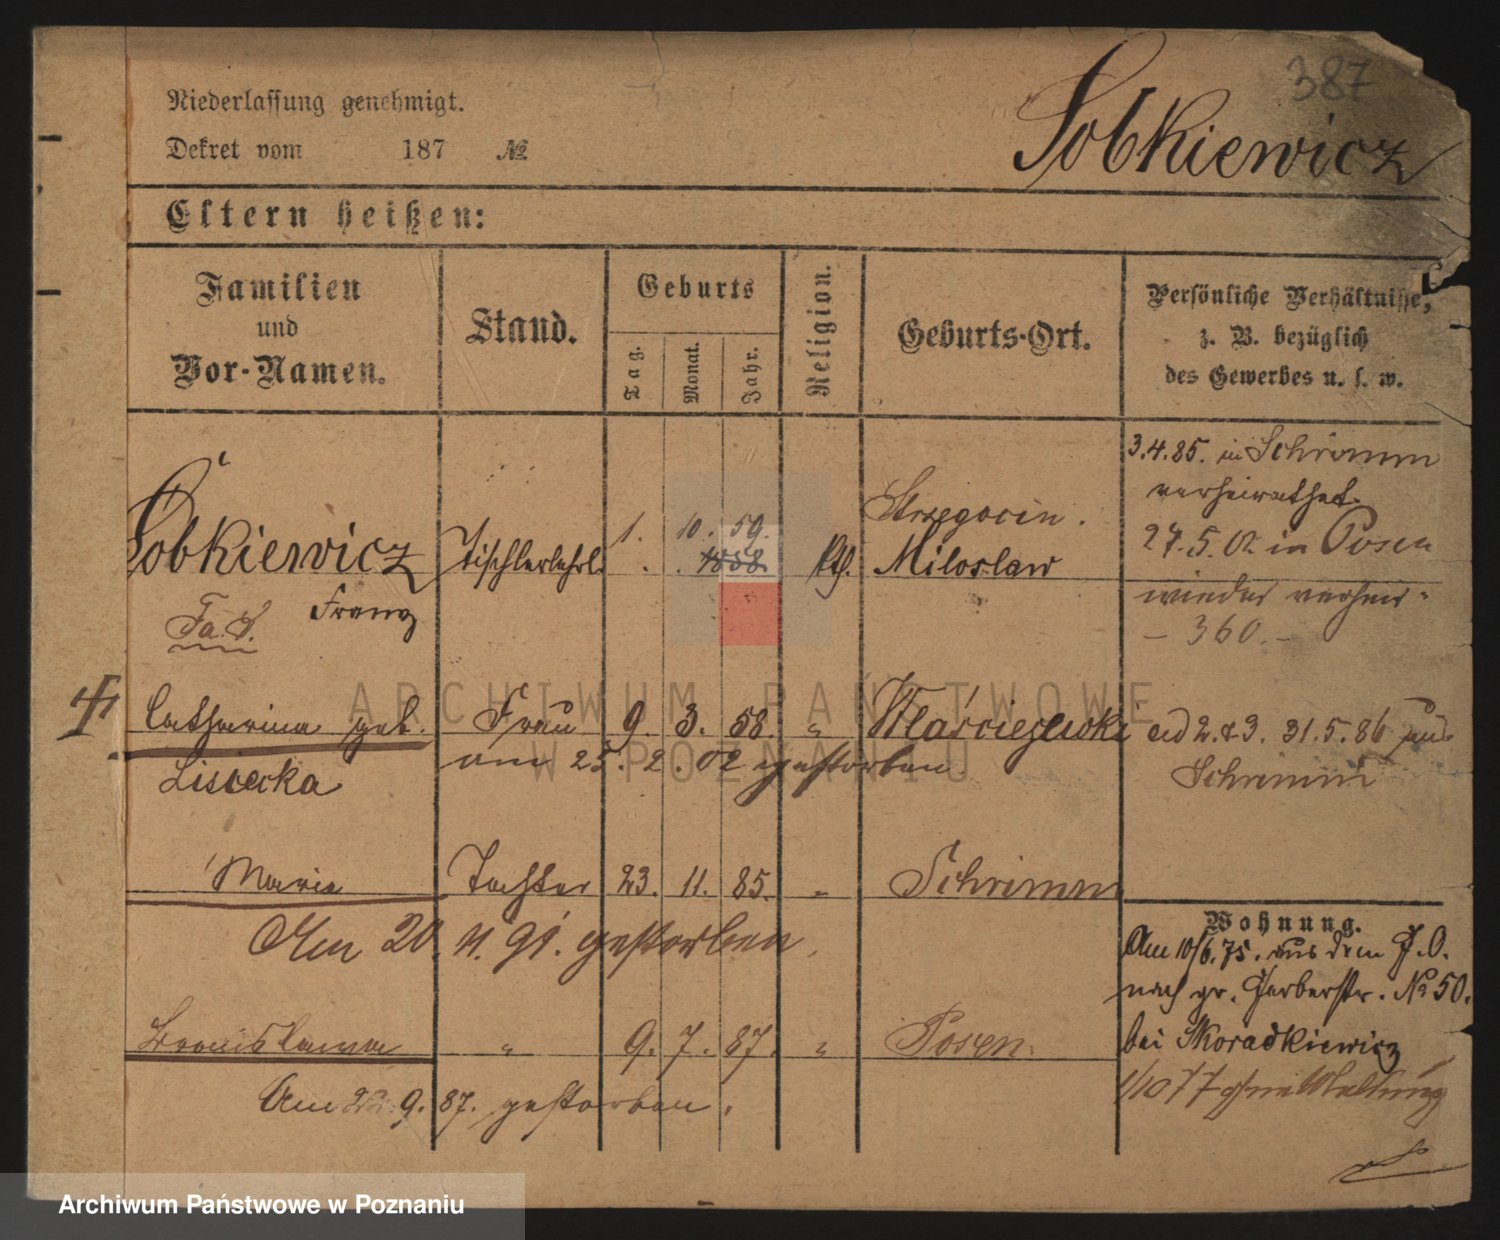 387
Niederlassung genehmigt.
Sobkiewicz
Dekret vom 187 №
Eltern heißen:
Familien und Vor-Namen.
Stand.
Geburts
Tag. Monat. Jahr.
Religion.
Geburts-Ort.
Persönliche Verhältnisse,
z. B. bezüglich
des Gewerbes u. s. w.
Sobkiewicz Tischlerlehrl. 1. 10. 59. 1858 kth.
Franz
Miloslaw
3.4.85. in Schrimm
verheirathet.
27.5.02 in Posen
wieder verheir-
- 360. -
Catharina geb. Frau 9. 3. 58. "
am 25. 2. 02 gestorben
ad 2.&3. 31.5.86 aus
Schrimm
Marie Tochter 23. 11. 85. " Schrimm
Am 20. 11. 91. gestorben.
Bronislawa " 9. 7. 87. " Posen.
Am 9. 87. gestorben.
Wohnung.
Am 10/6.75. aus dem
nach gr. Gerberstr. № 50.
bei Skoradkiewicz
1/10 77 ohne Meldung
ARCHIWUM PAŃSTWOWE
W POZNANIU
Archiwum Państwowe w Poznaniu